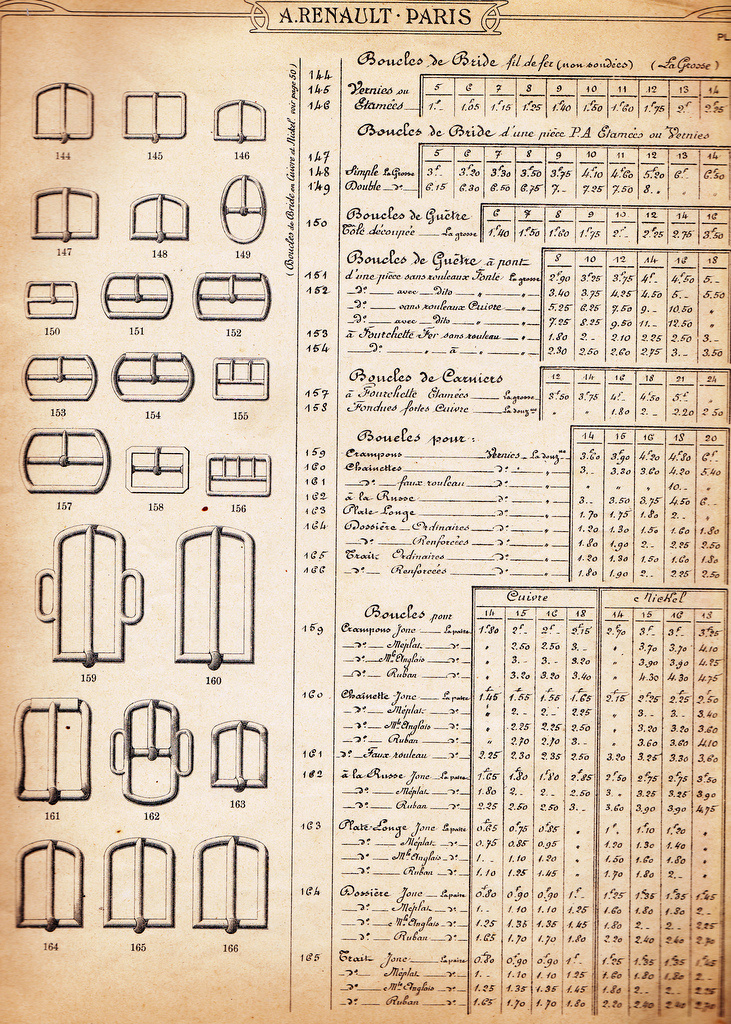 A. RENAULT · PARIS
PL
144
145
146
147
148
149
150
151
152
153
154
155
157
158
156
159
160
161
162
163
164
165
166
(Boucles de Bride en Cuivre et Nickel voir page 50)
Boucles de Bride fil de fer (non soudées) (La Grosse)
5 6 7 8 9 10 11 12 13 14
144
145 Vernies ou
146 Etamées 1f. 1.05 1.15 1.25 1.40 1.50 1.60 1.75 2f. 2.25
Boucles de Bride d'une pièce P.A Etamées ou Vernies
147 5 6 7 8 9 10 11 12 13 14
148 Simple La Grosse 3f. 3.20 3.30 3.50 3.75 4.10 4.60 5.20 6f. 6.50
149 Double d° 6.15 6.30 6.50 6.75 7.- 7.25 7.50 8.- " "
150 Boucles de Guêtre 6 7 8 9 10 12 14 16
Tôle découpée La grosse 1.40 1.50 1.60 1.75 2.- 2.25 2.75 3.50
Boucles de Guêtre à pont 8 10 12 14 16 18
151 d'une pièce sans rouleaux Fonte La grosse 2.90 3.25 3.75 4f. 4.50 5.-
152 d° avec dito " " 3.40 3.75 4.25 4.50 5.- 5.50
d° sans rouleaux Cuivre " 5.25 6.25 7.50 9.- 10.50 "
d° avec dito " " 7.25 8.25 9.50 11.- 12.50 "
153 à Fourchette Fer sans rouleau " 1.80 2.- 2.10 2.25 2.50 3.-
154 d° à " " 2.30 2.50 2.60 2.75 3.- 3.50
Boucles de Carniers 12 14 16 18 21 24
157 à Fourchette Etamées La grosse 3.50 3.75 4f. 4.50 5f. "
158 Fondues fortes Cuivre La douzne " " 1.80 2.- 2.20 2.50
Boucles pour : 14 15 16 18 20
159 Crampons Vernies La douzne 3.60 3.90 4.20 4.80 6f.
160 Chainettes d° " 3.- 3.30 3.60 4.20 5.40
161 d° faux rouleau d° " " " " 10.- "
162 à la Russe d° " 3.- 3.50 3.75 4.50 6.-
163 Plate Longe d° " 1.70 1.75 1.80 2.- "
164 Dossière Ordinaires d° " 1.20 1.30 1.50 1.60 1.80
d° Renforcées d° " 1.80 1.90 2.- 2.25 2.50
165 Trait Ordinaires d° " 1.20 1.30 1.50 1.60 1.80
166 d° Renforcées d° " 1.80 1.90 2.- 2.25 2.50
Cuivre Nickel
Boucles pour 14 15 16 18 14 15 16 18
159 Crampons Jonc La paire 1.80 2f. 2f. 2.15 2.70 3f. 3f. 3.25
d° Méplat d° " 2.50 2.50 3.- " 3.70 3.70 4.10
d° Mt Anglais d° " 3.- 3.- 3.20 " 3.90 3.90 4.25
d° Ruban d° " 3.20 3.20 3.40 " 4.30 4.30 4.75
160 Chainette Jonc La paire 1.45 1.55 1.55 1.65 2.15 2.25 2.25 2.50
d° Méplat d° " 2.- 2.- 2.25 " 3.- 3.- 3.40
d° Mt Anglais d° " 2.25 2.25 2.50 " 3.20 3.20 3.60
d° Ruban d° " 2.70 2.70 3.- " 3.60 3.60 4.10
161 d° Faux rouleau d° 2.25 2.30 2.35 2.50 3.20 3.25 3.30 3.60
162 à la Russe Jonc La paire 1.65 1.80 1.80 2.25 2.50 2.75 2.75 3.50
d° Méplat d° 1.80 2.- 2.- 2.50 3.- 3.25 3.25 3.90
d° Ruban d° 2.25 2.50 2.50 3.- 3.60 3.90 3.90 4.75
163 Plate-Longe Jonc La paire 0.65 0.75 0.85 " 1f. 1.10 1.20 "
d° Méplat d° 0.75 0.85 0.95 " 1.20 1.30 1.40 "
d° Mt Anglais d° 1.- 1.10 1.20 " 1.50 1.60 1.80 "
d° Ruban d° 1.10 1.25 1.45 " 1.70 1.80 2.- "
164 Dossière Jonc La paire 0.80 0.90 0.90 1f. 1.25 1.35 1.35 1.45
d° Méplat d° 1.- 1.10 1.10 1.25 1.60 1.80 1.80 2.-
d° Mt Anglais d° 1.25 1.35 1.35 1.45 1.80 2.- 2.- 2.25
d° Ruban d° 1.65 1.70 1.70 1.80 2.20 2.40 2.40 2.70
165 Trait Jonc La paire 0.80 0.90 0.90 1f. 1.25 1.35 1.35 1.45
d° Méplat d° 1.- 1.10 1.10 1.25 1.60 1.80 1.80 2.-
d° Mt Anglais d° 1.25 1.35 1.35 1.45 1.80 2.- 2.- 2.25
d° Ruban d° 1.65 1.70 1.70 1.80 2.20 2.40 2.40 2.70